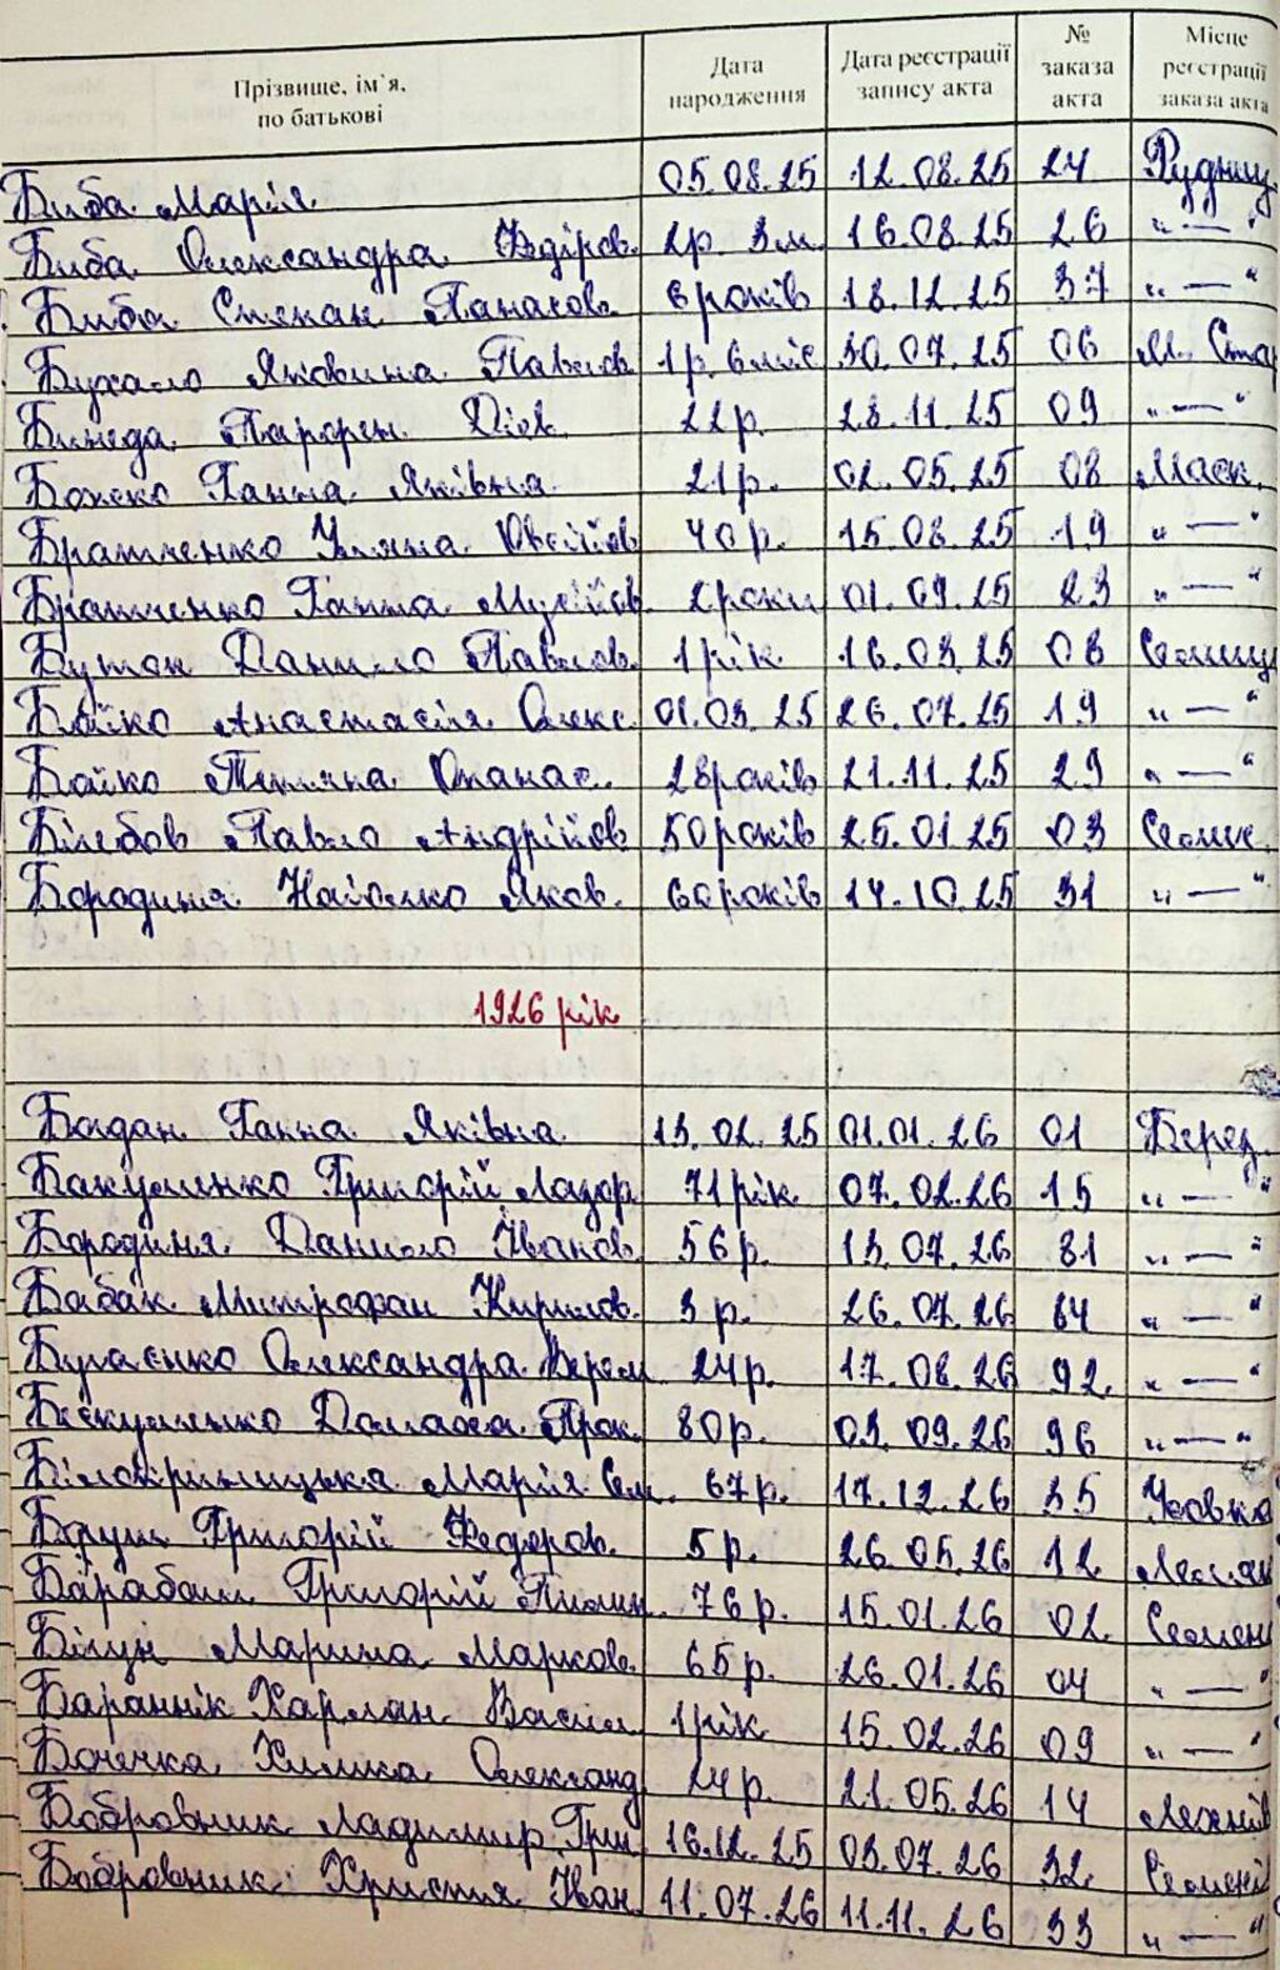 Прізвище, ім`я, по батькові | Дата народження | Дата реєстрації запису акта | № заказа акта | Місце реєстрації заказа акта
Биба Марія | 05.08.25 | 12.08.25 | 24 | Рудниц.
Биба Олександра Федіров. | 2р. 3м. | 16.08.25 | 26 | "—"
Биба Степан Панасов. | 6 років | 18.12.25 | 37 | "—"
Бухало Яковина Павлов. | 1р. 6міс | 30.07.25 | 06 | М. Стар
Бинеда Парфен | 22р. | 28.11.25 | 09 | "—"
Божко Ганна Яківна | 21р. | 02.05.25 | 08
Братченко Уляна | 40р. | 15.08.25 | 19 | "—"
Братченко Ганна Мусійов. | 2роки | 01.09.25 | 23 | "—"
Буток Данило Павлов. | 1 рік. | 16.03.25 | 08
Бойко Анастасія Олекс. | 01.03.25 | 26.07.25 | 19 | "—"
Бойко Тетяна Опанас. | 28років | 21.11.25 | 29 | "—"
Білебов Павло Андрійов | 50років | 25.01.25 | 03
Бородиня Яков. | 60років | 14.10.25 | 31 | "—"
1926 рік
Бадан Ганна Яківна | 13.02.25 | 01.01.26 | 01 | Берез.
Бакуменко Григорій Лазор | 71рік. | 07.02.26 | 15 | "—"
Бородиня Данило Іванов. | 56р. | 13.07.26 | 81 | "—"
Бабак Митрофан Кирилов. | 3 р. | 26.07.26 | 84 | "—"
Бугаєнко Олександра Верем | 24р. | 17.08.26 | 92. | "—"
Домаха Прок. | 80р. | 03.09.26 | 96 | "—"
Білокриницька Марія Сем. | 67р. | 17.12.26 | 35
Борун Григорій Федоров. | 5 р. | 26.05.26 | 12.
Барабаш Григорій Пилип. | 76р. | 15.01.26 | 02. | Семен
Білун Марина Марков. | 65р. | 26.01.26 | 04 | "—"
Бараннік Харлан Васил | 1рік | 15.02.26 | 09 | "—"
Бочечка Химка Олександ | 24р. | 21.05.26 | 14 | Лехнів
Бобровник Ладимир Григ. | 16.12.25 | 03.07.26 | 32. | Семені
Бобровник Христя Іван. | 11.07.26 | 11.11.26 | 33 | "—"